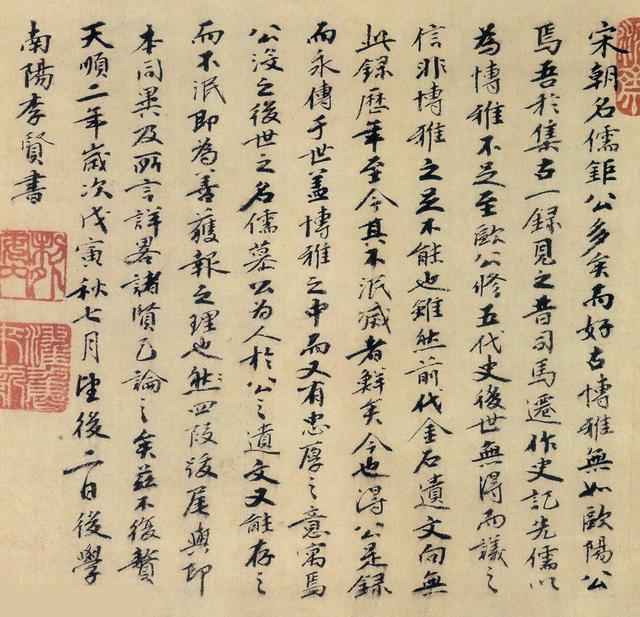 宋朝名儒鉅公多矣而好古博雅無如歐陽公
焉吾於集古一錄見之昔司馬遷作史記先儒以
為博雅不足至歐公修五代史後世無得而議之
信非博雅之足不能也雖然前代金石遺文向無
此錄歷年至今其不泯滅者鮮矣今也得公是錄
而永傳于世蓋博雅之中而又有忠厚之意寓焉
公沒之後世之名儒慕公為人於公之遺文又能存之
而不泯即為善獲報之理也然四段後尾與印
本同異及所言詳畧諸賢已論之矣茲不復贅
天順二年歲次戊寅秋七月望後二日後學
南陽李賢書